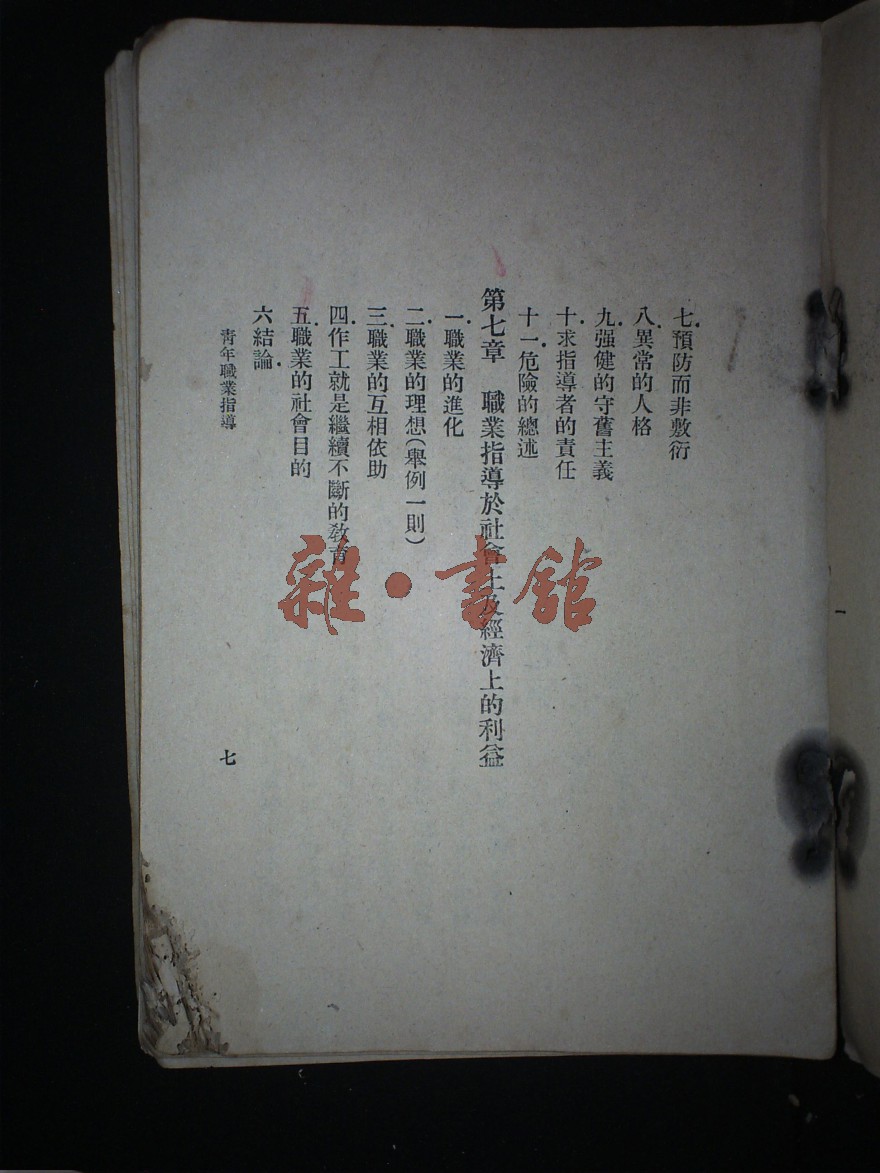 七.預防而非敷衍
八.異常的人格
九.强健的守舊主義
十.求指導者的責任
十一.危險的總述
第七章　職業指導於社會上及經濟上的利益
一.職業的進化
二.職業的理想(舉例一則)
三.職業的互相依助
四.作工就是繼續不斷的敎育
五.職業的社會目的
六結論.
靑年職業指導
七
雜·書館
一